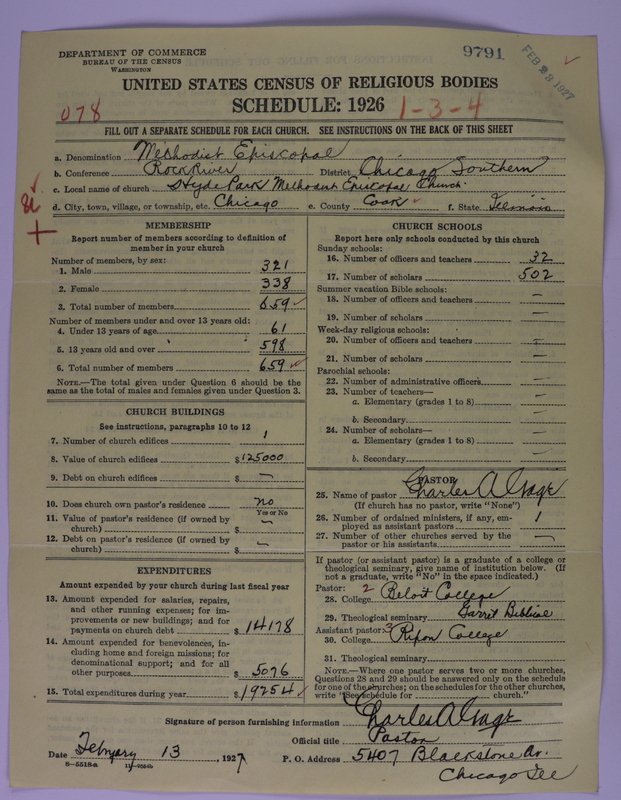 DEPARTMENT OF COMMERCE
BUREAU OF THE CENSUS
WASHINGTON
9791
FEB 23 1927
UNITED STATES CENSUS OF RELIGIOUS BODIES
SCHEDULE: 1926
078
1-3-4
FILL OUT A SEPARATE SCHEDULE FOR EACH CHURCH. SEE INSTRUCTIONS ON THE BACK OF THIS SHEET
a. Denomination Methodist Episcopal
b. Conference Rock River District Chicago Southern
c. Local name of church Hyde Park Methodist Episcopal Church.
d. City, town, village, or township, etc. Chicago e. County Cook f. State Illinois
MEMBERSHIP
Report number of members according to definition of
member in your church
Number of members, by sex:
1. Male 321
2. Female 338
3. Total number of members 659
Number of members under and over 13 years old:
4. Under 13 years of age 61
5. 13 years old and over 598
6. Total number of members 659
NOTE.—The total given under Question 6 should be the
same as the total of males and females given under Question 3.
CHURCH BUILDINGS
See instructions, paragraphs 10 to 12
7. Number of church edifices 1
8. Value of church edifices $125000
9. Debt on church edifices $ —
10. Does church own pastor's residence no
Yes or No
11. Value of pastor's residence (if owned by
church) $ —
12. Debt on pastor's residence (if owned by
church) $ —
EXPENDITURES
Amount expended by your church during last fiscal year
13. Amount expended for salaries, repairs,
and other running expenses; for im-
provements or new buildings; and for
payments on church debt $ 14178
14. Amount expended for benevolences, in-
cluding home and foreign missions; for
denominational support; and for all
other purposes $ 5076
15. Total expenditures during year $ 19254
CHURCH SCHOOLS
Report here only schools conducted by this church
Sunday schools:
16. Number of officers and teachers 32
17. Number of scholars 502
Summer vacation Bible schools:
18. Number of officers and teachers —
19. Number of scholars —
Week-day religious schools:
20. Number of officers and teachers —
21. Number of scholars —
Parochial schools:
22. Number of administrative officers —
23. Number of teachers—
a. Elementary (grades 1 to 8) —
b. Secondary —
24. Number of scholars—
a. Elementary (grades 1 to 8) —
b. Secondary —
PASTOR
25. Name of pastor Charles A Gage
(If church has no pastor, write "None")
26. Number of ordained ministers, if any, em-
ployed as assistant pastors 1
27. Number of other churches served by the
pastor or his assistants —
If pastor (or assistant pastor) is a graduate of a college or
theological seminary, give name of institution below. (If
not a graduate, write "No" in the space indicated.)
Pastor: 2
28. College Beloit College
29. Theological seminary Garret Biblical
Assistant pastor: 3
30. College Ripon College
31. Theological seminary
NOTE.—Where one pastor serves two or more churches,
Questions 28 and 29 should be answered only on the schedule
for one of the churches; on the schedules for the other churches,
write "See schedule for church."
Signature of person furnishing information Charles A Gage
Official title Pastor
Date February 13, 1927 P. O. Address 5407 Blackstone Av.
Chicago Ill
8-5518-a